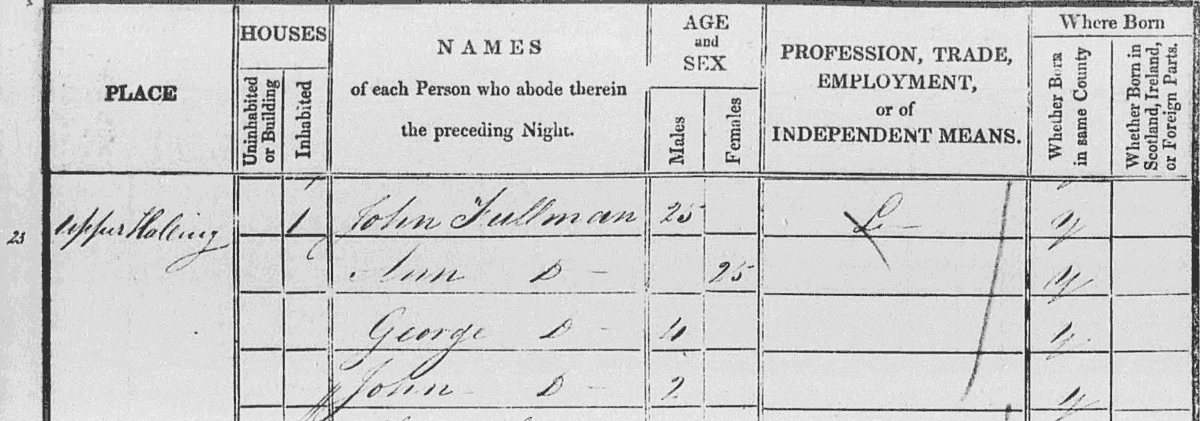 PLACE
HOUSES
Uninhabited
or Building
Inhabited
NAMES
of each Person who abode therein
the preceding Night.
AGE
and
SEX
Males
Females
PROFESSION, TRADE,
EMPLOYMENT,
or of
INDEPENDENT MEANS.
Where Born
Whether Born
in same County
Whether Born in
Scotland, Ireland,
or Foreign Parts.
23 Upper Halling 1 John Fullman 25 L - y
Ann D - 25 y
George D - 4 y
John D - 2 y